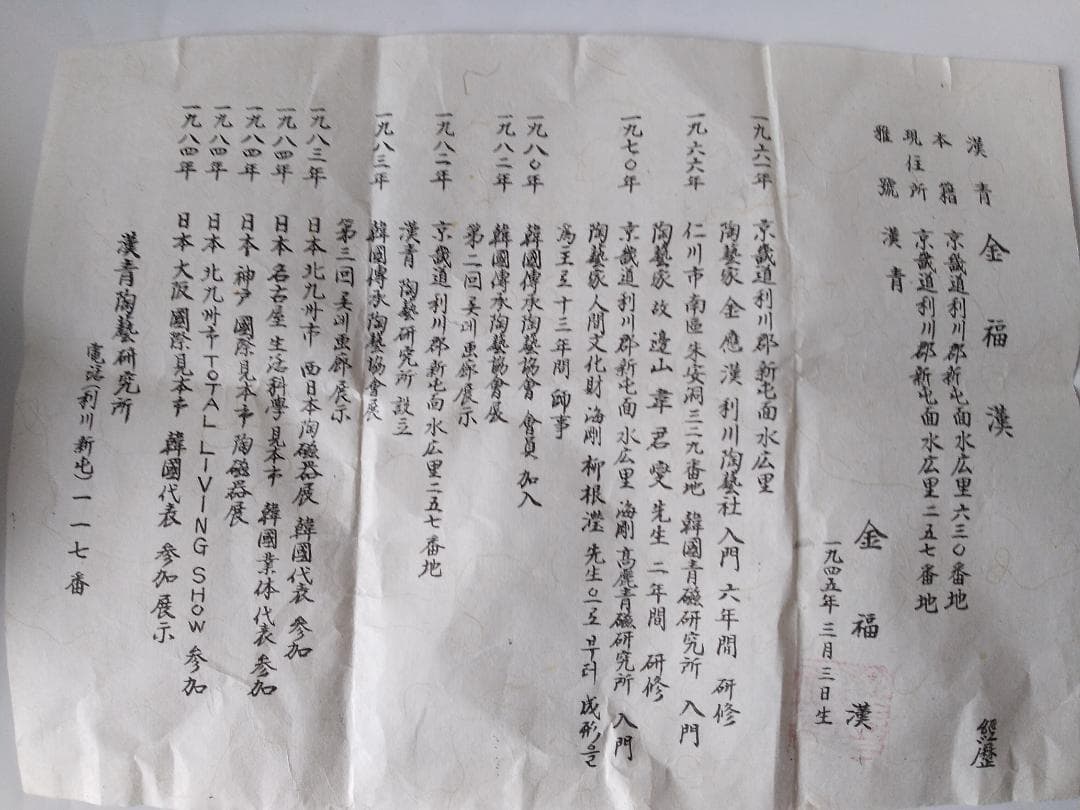 漢青 金福漢 經歷
本籍 京畿道利川郡新屯面水広里六三〇番地
現住所 京畿道利川郡新屯面水広里二五七番地
雅號 漢青
金福漢
一九四五年三月三日生
一九六一年 京畿道利川郡新屯面水広里
陶藝家金應漢利川陶藝社入門六年間研修
一九六六年 仁川市南區朱安洞三二九番地 韓國青磁研究所入門
陶藝家故邊山韋君燮先生二年間研修
一九七〇年 京畿道利川郡新屯面水広里海剛高麗青磁研究所入門
陶藝家人間文化財海剛柳根瀅先生으로부터成形을
為主로十三年間師事
一九八〇年 韓國傳承陶藝協會會員加入
一九八二年 韓國傳承陶藝協會展
第二回美術画廊展示
一九八二年 京畿道利川郡新屯面水広里二五七番地
漢青陶藝研究所設立
一九八三年 韓國傳承陶藝協會展
第三回美術画廊展示
一九八三年 日本北九州市 西日本陶磁器展 韓國代表参加
一九八四年 日本名古屋生活科學見本市 韓國業体代表参加
一九八四年 日本神戸國際見本市陶磁器展
一九八四年 日本北九州市TOTAL LIVING SHOW参加
一九八四年 日本大阪國際見本市 韓國代表参加展示
漢青陶藝研究所
電話(利川新屯)一一七番